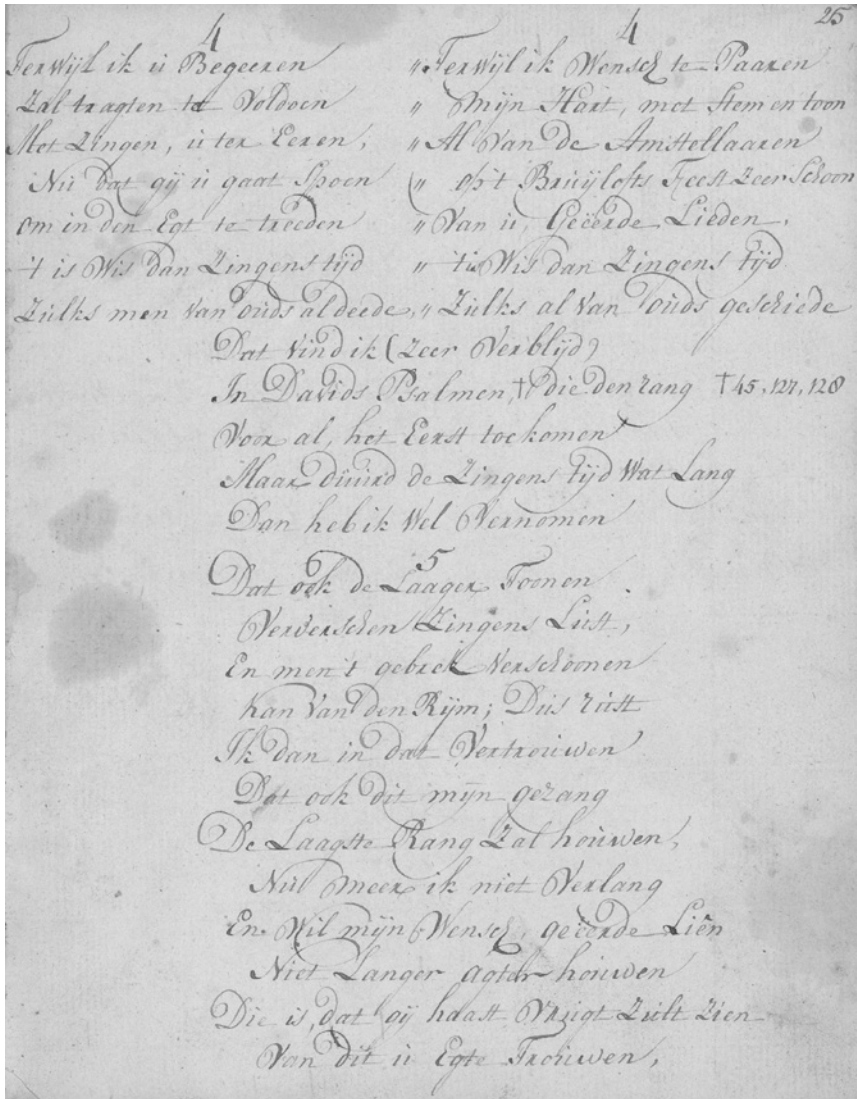 25
4
Terwijl ik ú Begeeren
Zal tragten te Voldoen
Met Zingen, ú ter Eeren,
Nú dat gij ú gaat Spoen
om in den Egt te treeden
't is Wis dan Zingens tijd
Zúlks men Van oúds al deede,
4
„ Terwijl ik Wensch te Paaren
„ Mijn Hart, met Stem en toon
„ Al Van de Amstellaaren
„ op't Brúijlofts Feest Zeer Schoon
„ Van ú, Geëerde Lieden,
„ tis Wis dan Zingens tijd
„ Zúlks al Van oúds geschiede
Dat Vind ik (Zeer Verblijd)
In Davids Psalmen,† die den rang †45, 127, 128
Voor al, het Eerst toekomen
Maar dúúrd de Zingens tijd Wat Lang
Dan heb ik Wel Vernomen
5
Dat ook de Laager Toonen
Ververschen Zingens Lúst,
En men't gebrek Verschoonen
kan Van den Rijm; Dús rúst
Ik dan in dat Vertroúwen
Dat ook dit mijn gezang
De Laagste Rang Zal hoúwen,
Nú meer ik niet Verlang
En Wil mijn Wensch, geëerde Liên
Niet Langer agter hoúwen
Die is, dat gij haast Vrúgt Zúlt Zien
Van dit ú Egte Troúwen,